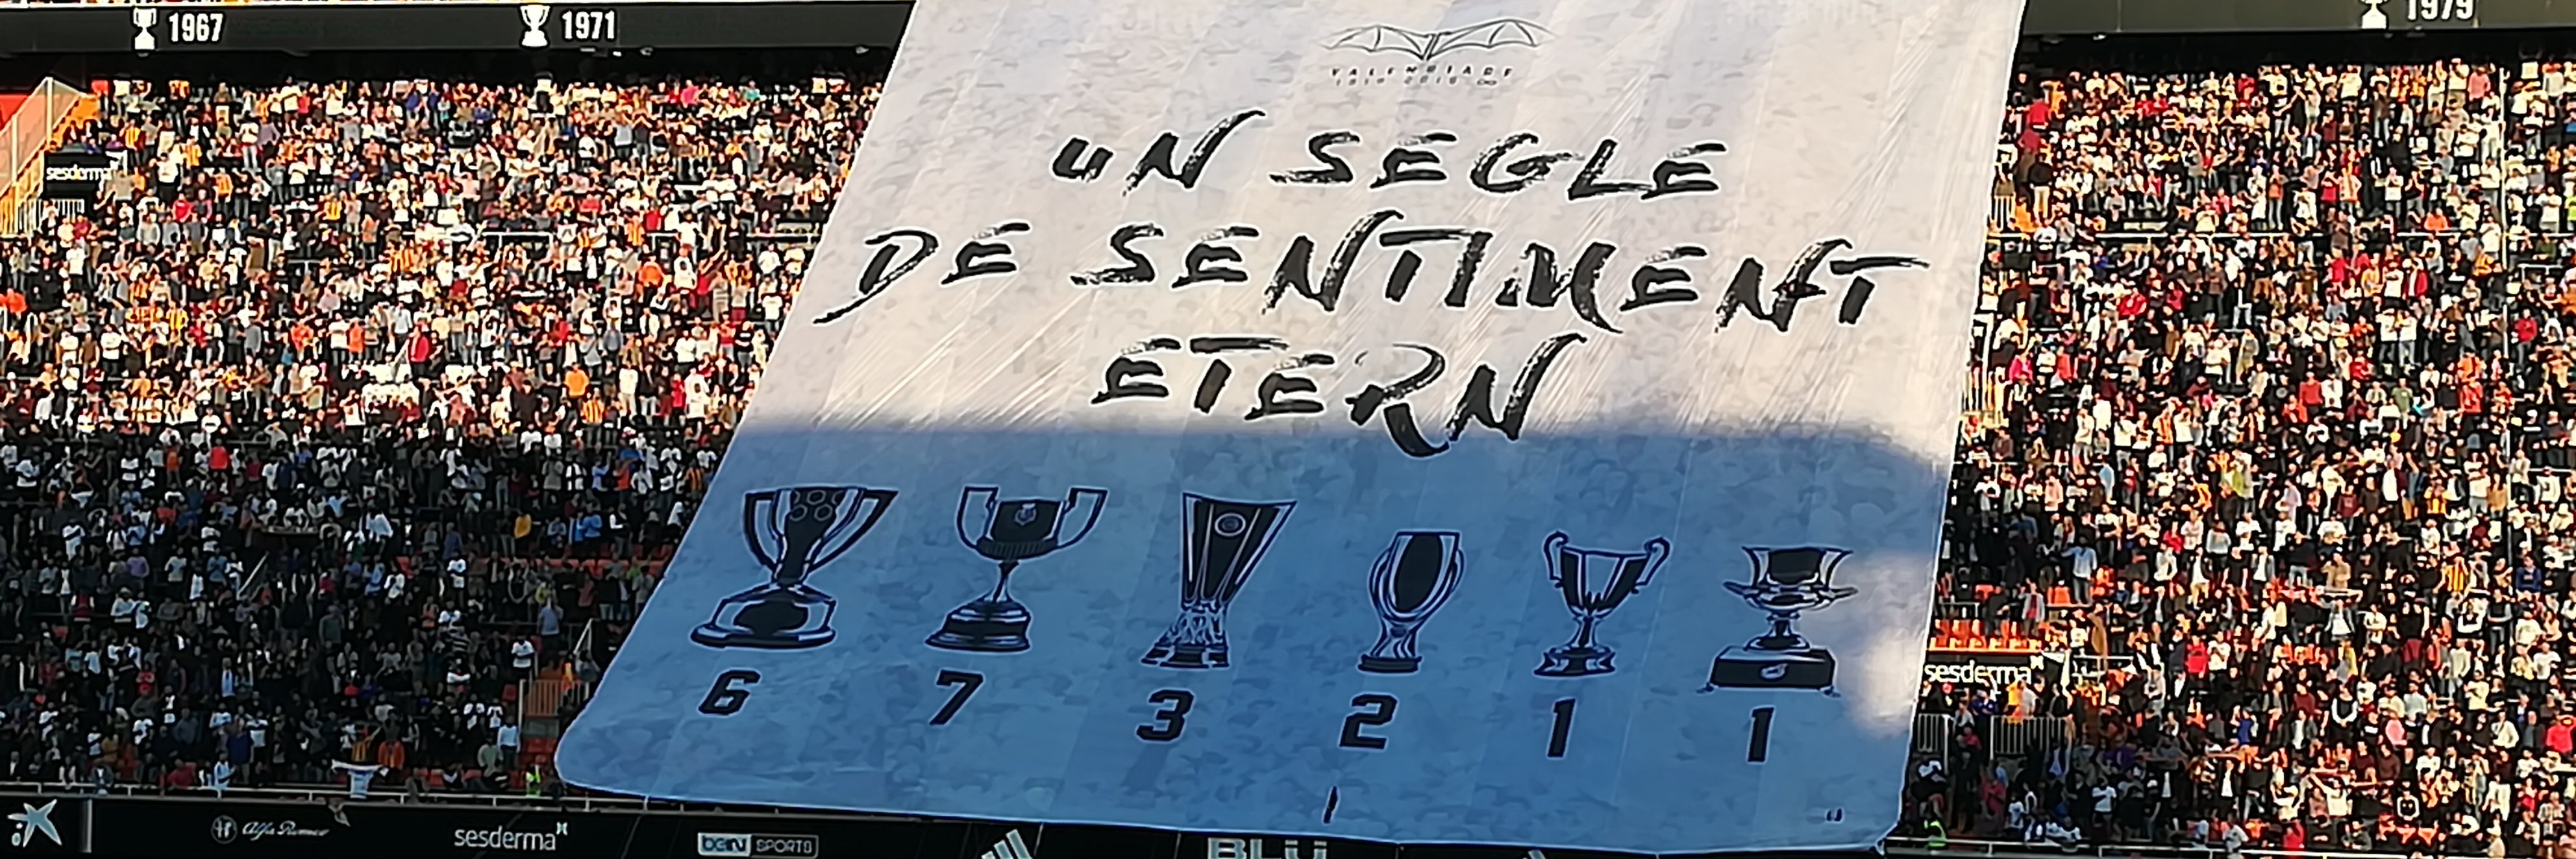 1967
1971
1979
UN SEGLE
DE SENTIMENT
ETERN
sesderma
6
7
3
2
1
1
sesderma
Alfa Romeo
sesderma
beIN SPORTS
BLU